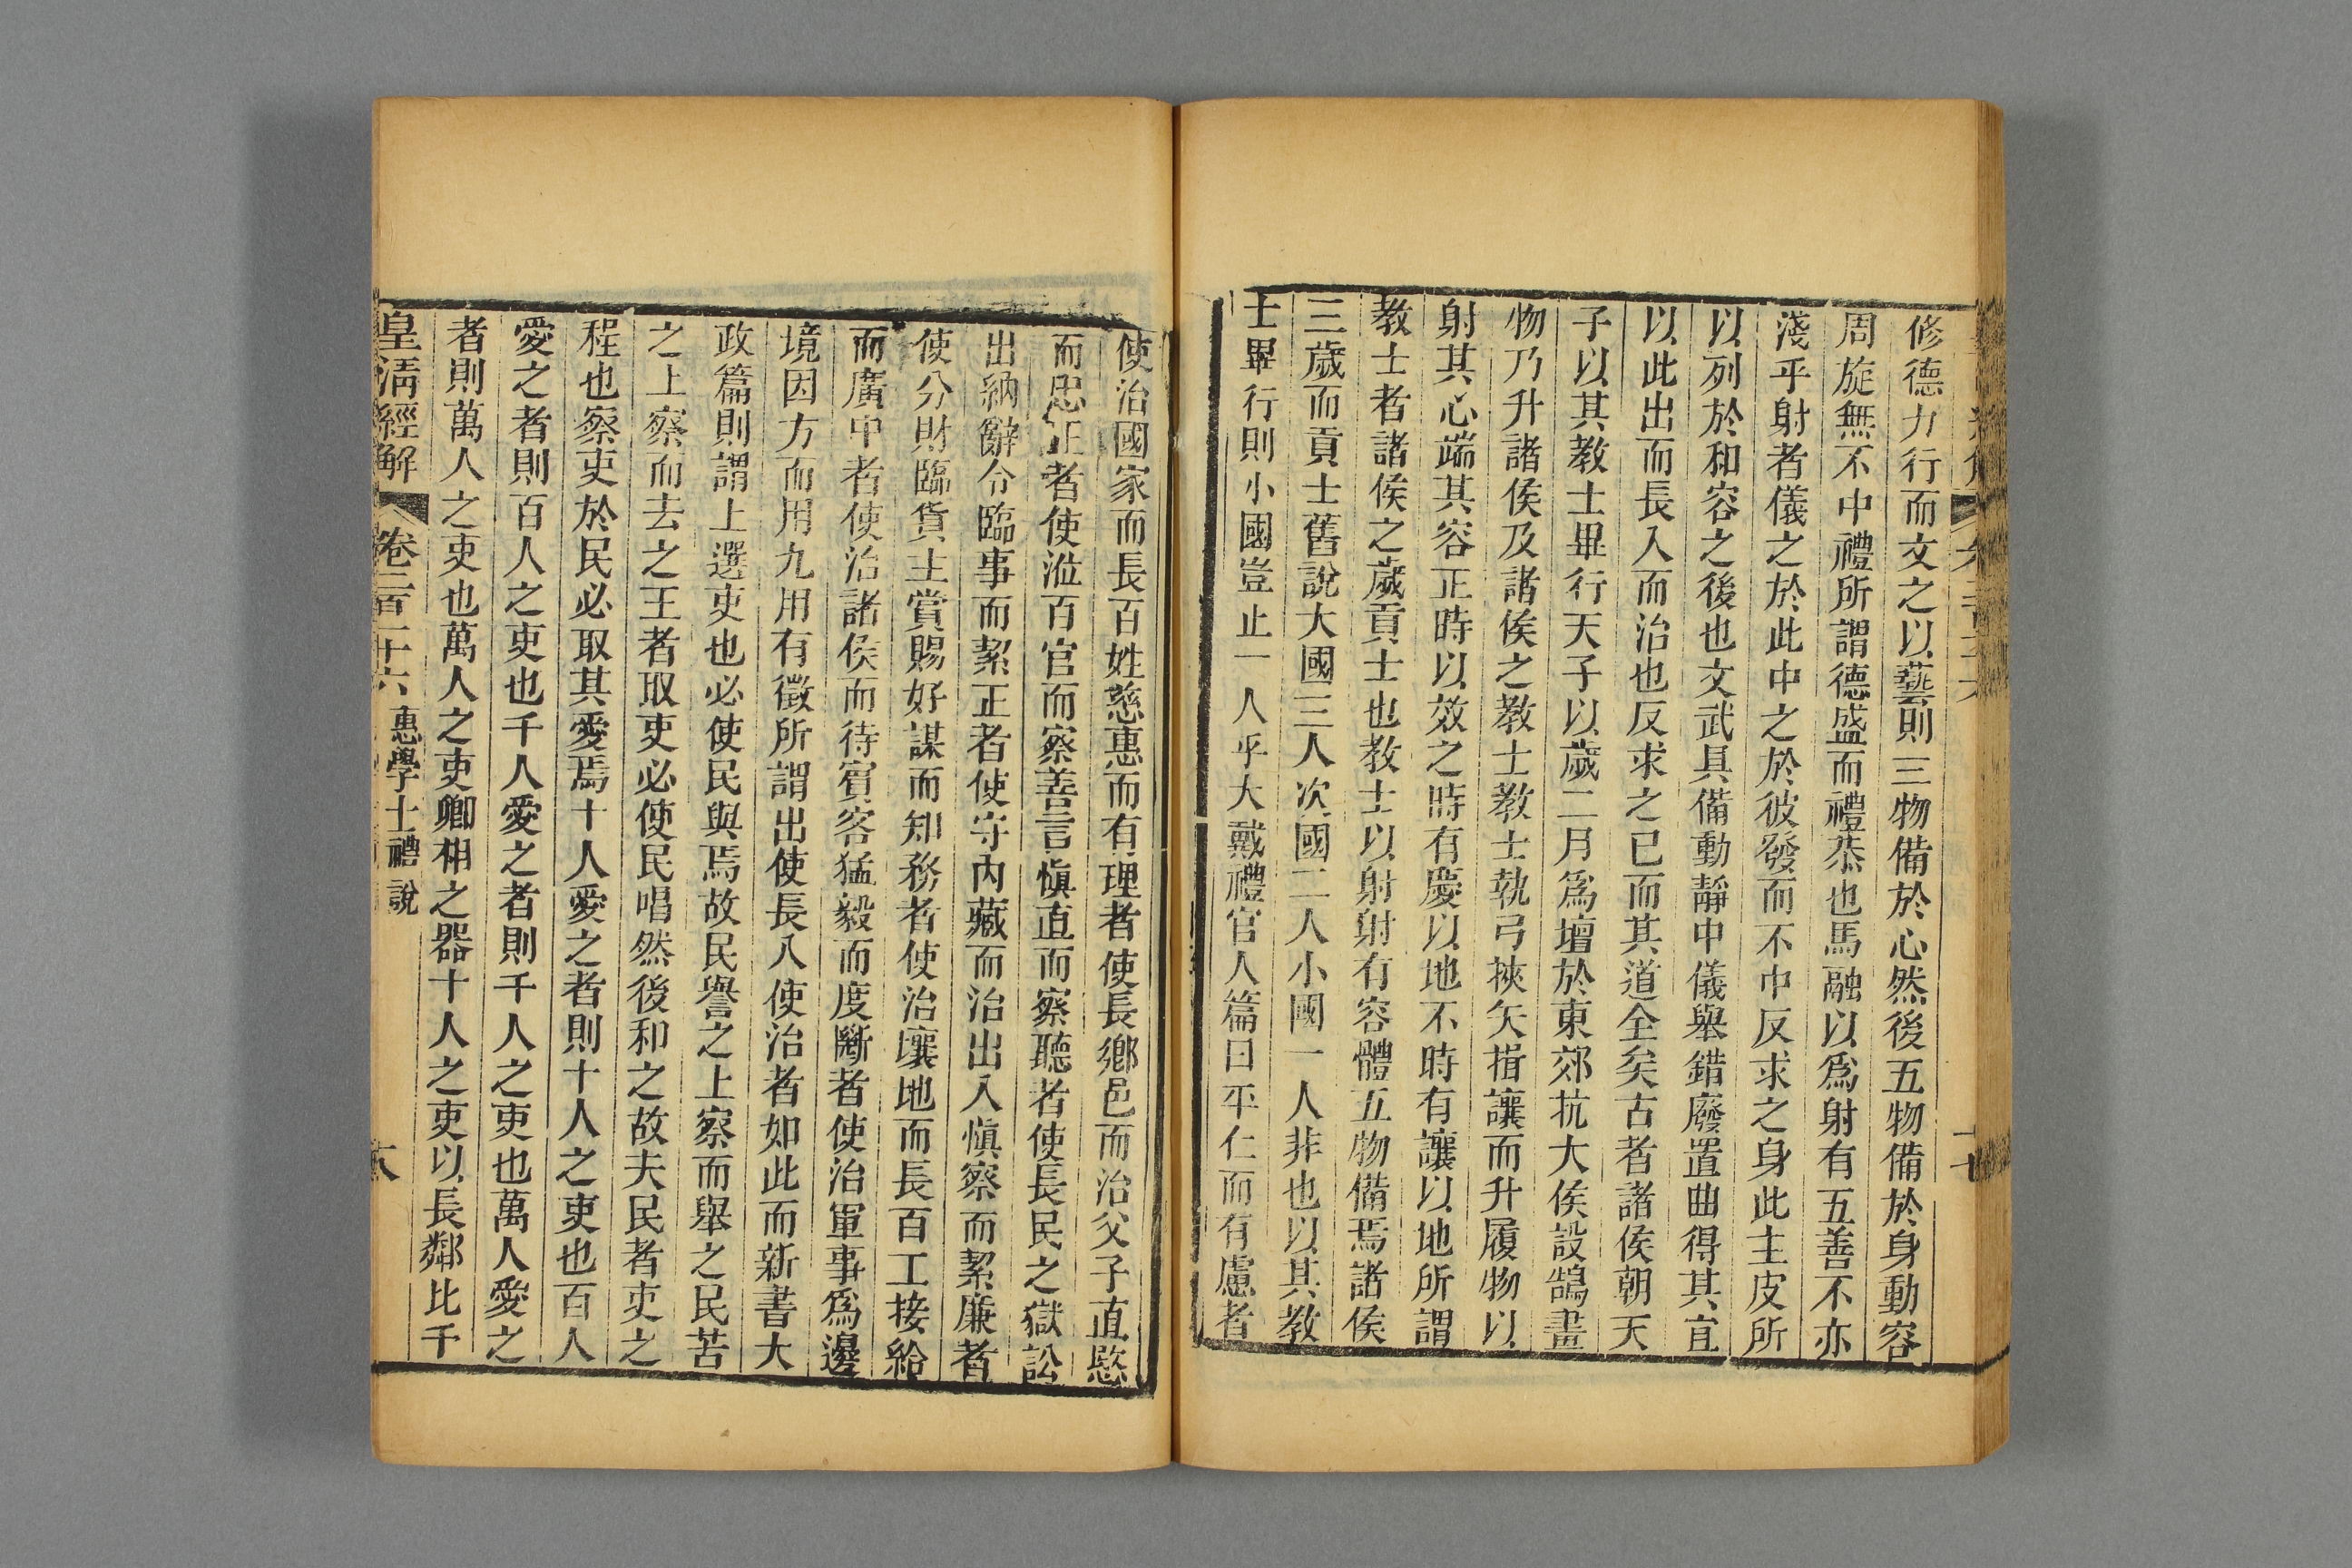 修德力行而文之以藝則三物備於心然後五物備於身動容
周旋無不中禮所謂德盛而禮恭也馬融以爲射有五善不亦
淺乎射者儀之於此中之於彼發而不中反求之身此主皮所
以列於和容之後也文武具備動靜中儀舉錯廢置曲得其宜
以此出而長入而治也反求之已而其道全矣古者諸侯朝天
子以其教士畢行天子以歲二月爲壇於東郊抗大侯設鵠畫
物乃升諸侯及諸侯之教士教士執弓挾矢揖讓而升履物以
射其心端其容正時以效之時有慶以地不時有讓以地所謂
教士者諸侯之歲貢士也教士以射射有容體五物備焉諸侯
三歲而貢士舊說大國三人次國二人小國一人非也以其教
士畢行則小國豈止一人乎大戴禮官人篇曰平仁而有慮者
使治國家而長百姓慈惠而有理者使長鄉邑而治父子直愍
而忠正者使涖百官而察善言慎直而察聽者使長民之獄訟
出納辭令臨事而絜正者使守內藏而治出入慎察而絜廉者
使分財臨貨主賞賜好謀而知務者使治壤地而長百工接給
而廣中者使治諸侯而待賓客猛毅而度斷者使治軍事爲邊
境因方而用九用有徵所謂出使長入使治者如此而新書大
政篇則謂上選吏也必使民與焉故民譽之上察而舉之民苦
之上察而去之王者取吏必使民唱然後和之故夫民者吏之
程也察吏於民必取其愛焉十人愛之者則十人之吏也百人
愛之者則百人之吏也千人愛之者則千人之吏也萬人愛之
者則萬人之吏也萬人之吏卿相之器十人之吏以長鄰比千
皇清經解 卷二百二十六 惠學士禮說 十八